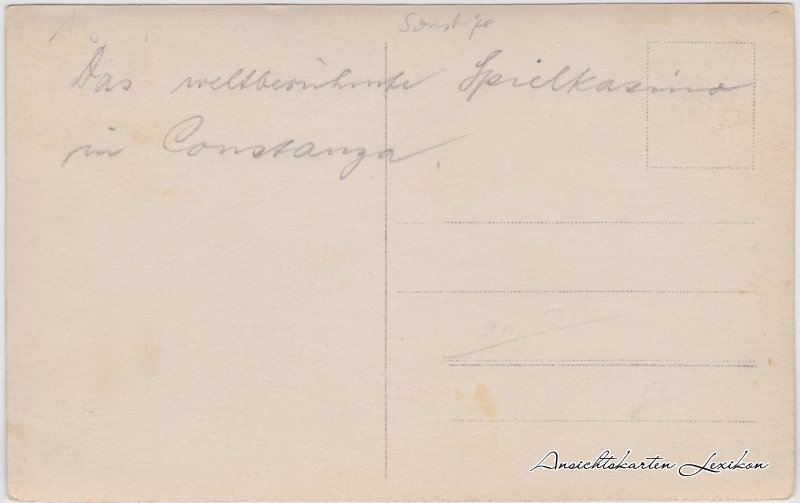 Sonstige
Das weltberühmte Spielkasino
in Constanza.
Ansichtskarten Lexikon